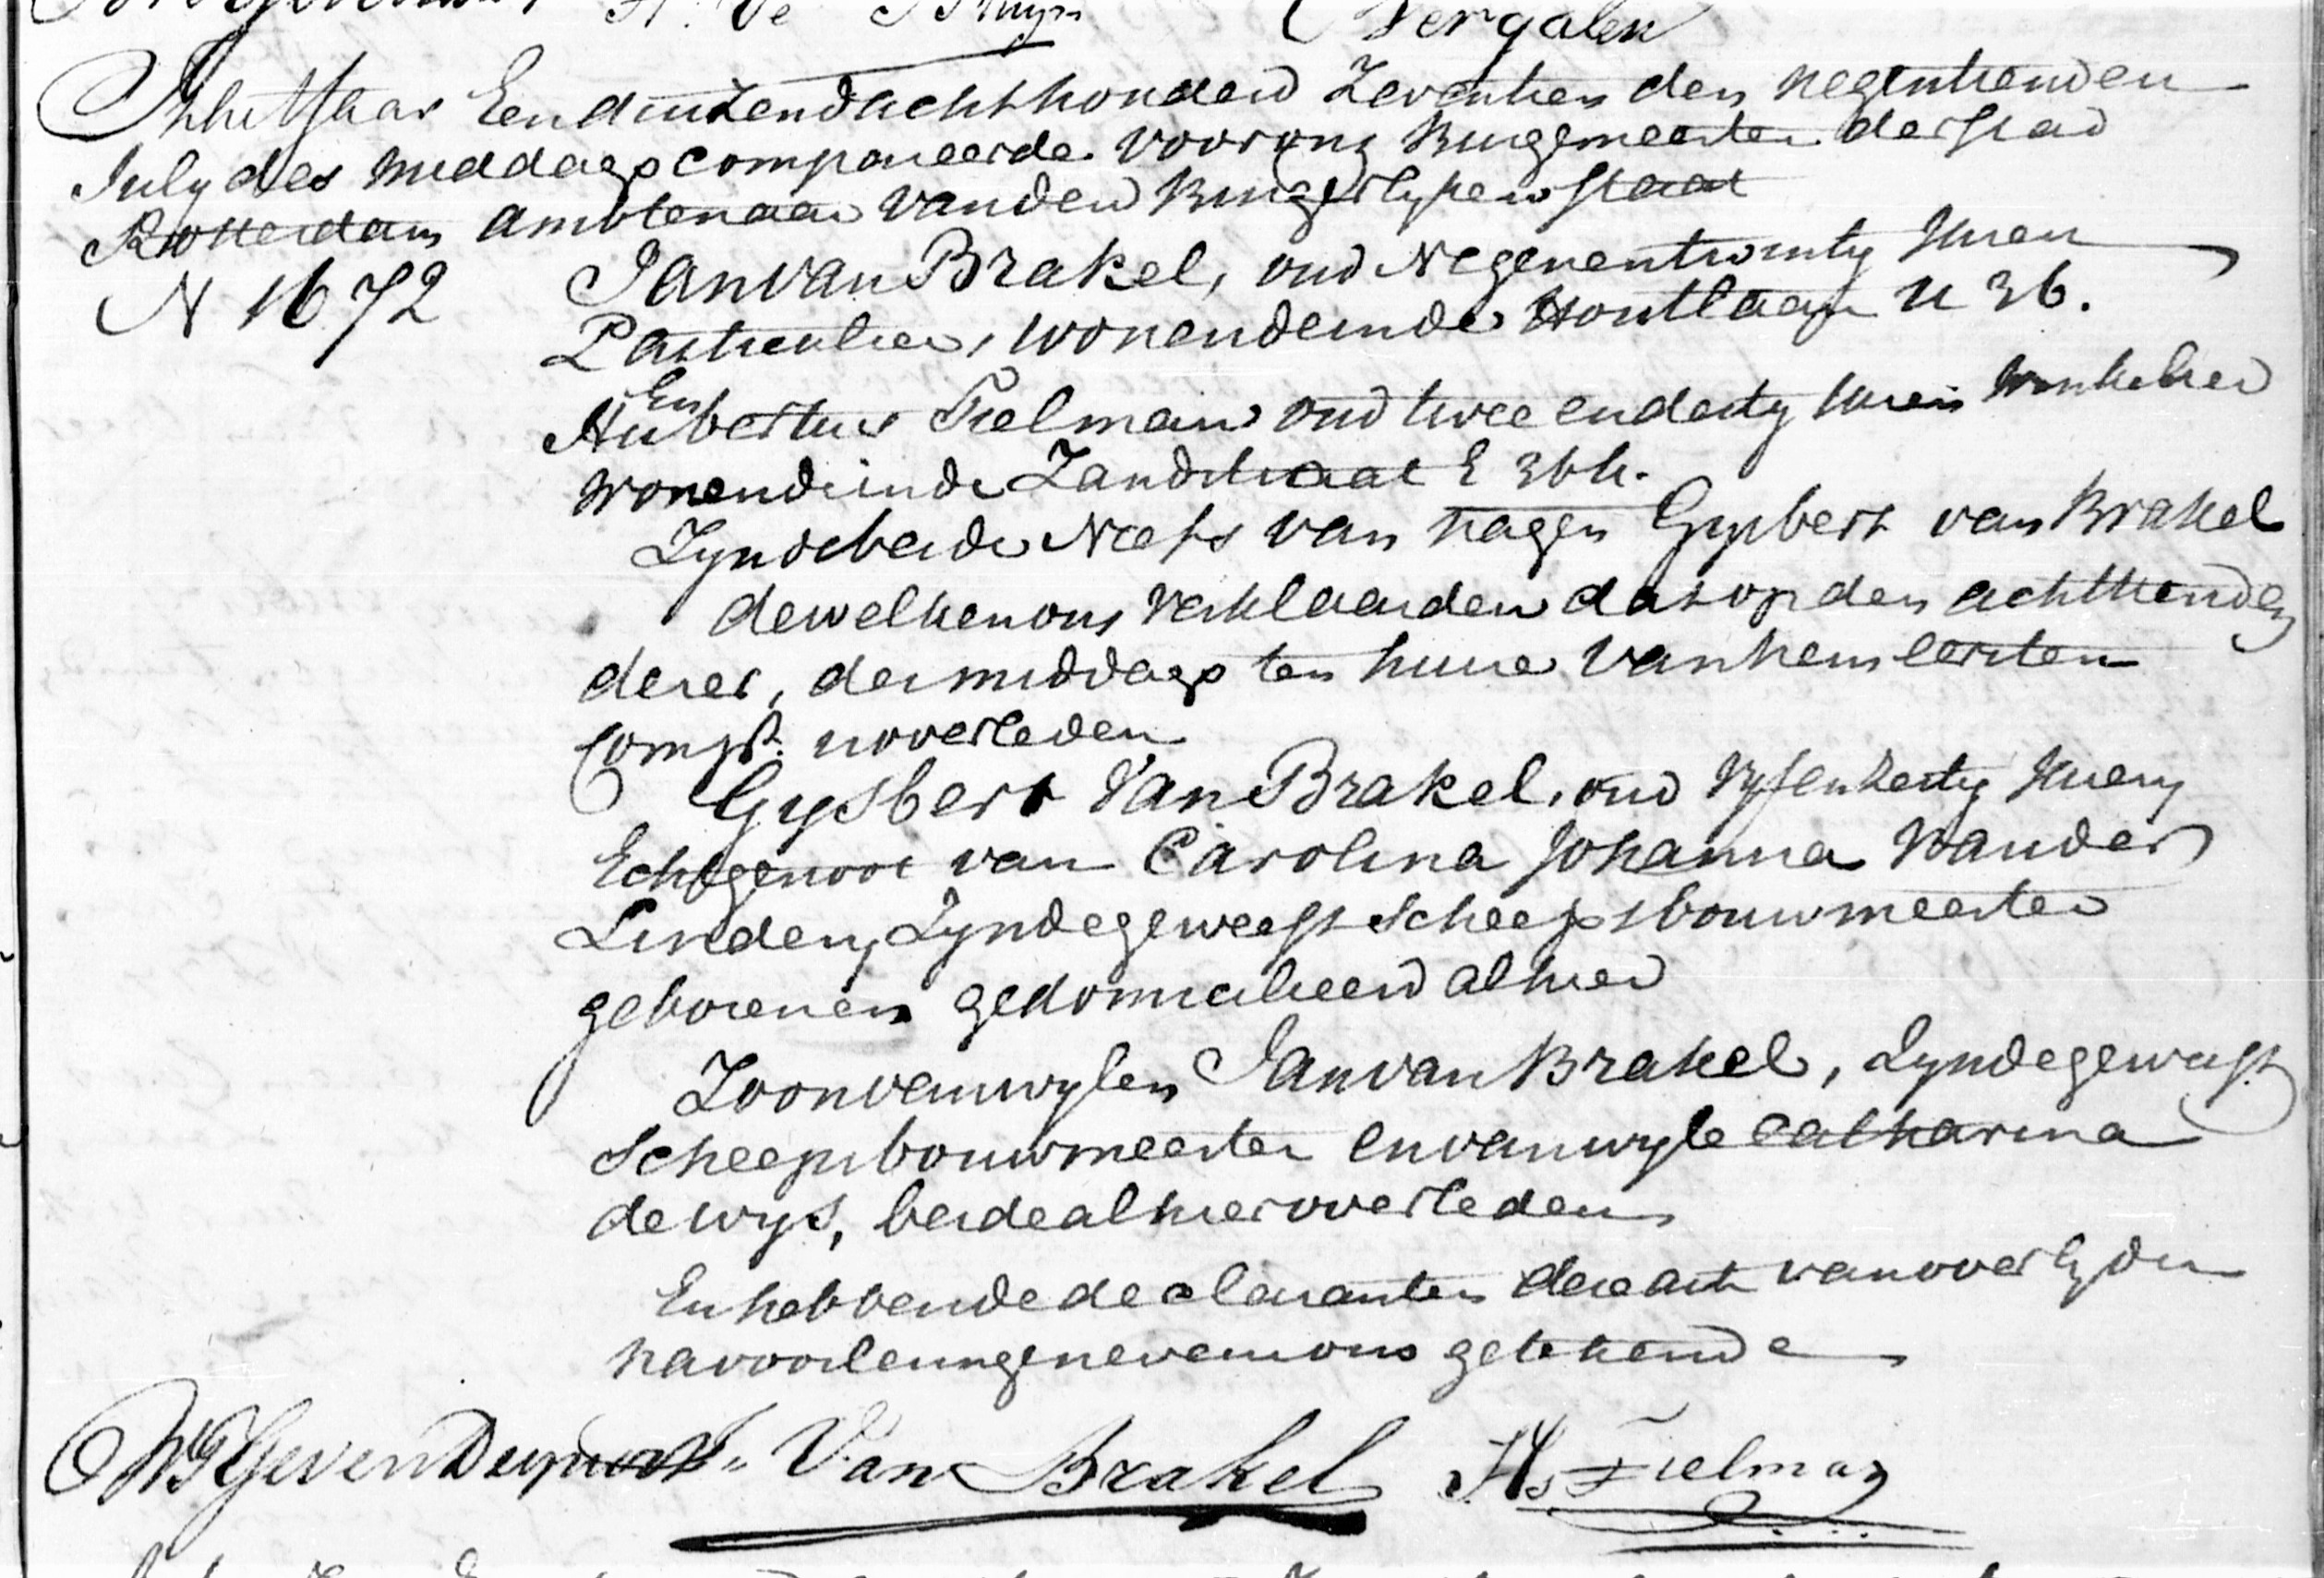 H. De Bruyn Vergalen
In het Jaar Eenduizendachthonderd Zeventien den negentienden
July des middags compareerde voor ons Burgemeester der stad
Rotterdam ambtenaar van den Burgerlyken staat
N 1672 Jan van Brakel, oud Negenentwintig Jaren
Particulier, wonende in de Houtlaan U 36.
En
Hubertus Tielman oud twee en dertig Jaren Winkelier
wonende in de Zandstraat E 366.
Zynde beide Neefs van nagen Gysbert van Brakel
dewelken ons verklaarden dat op den achttienden
dezer, des middags ten huize van hem eersten
compt. is overleden
Gysbert Van Brakel, oud Vyfendertig Jaren
Echtgenoot van Carolina Johanna Vander
Linden, Zynde geweest Scheepsbouwmeester
geboren en gedomicilieerd alhier
Zoon van wylen Jan van Brakel, Zynde geweest
Scheepsbouwmeester en van wyle Catharina
de Wys, beide alhier overleden
En hebbende declaranten deze acte van overlyden
na voorlezing nevens ons getekend
Van Brakel Hs Tielman